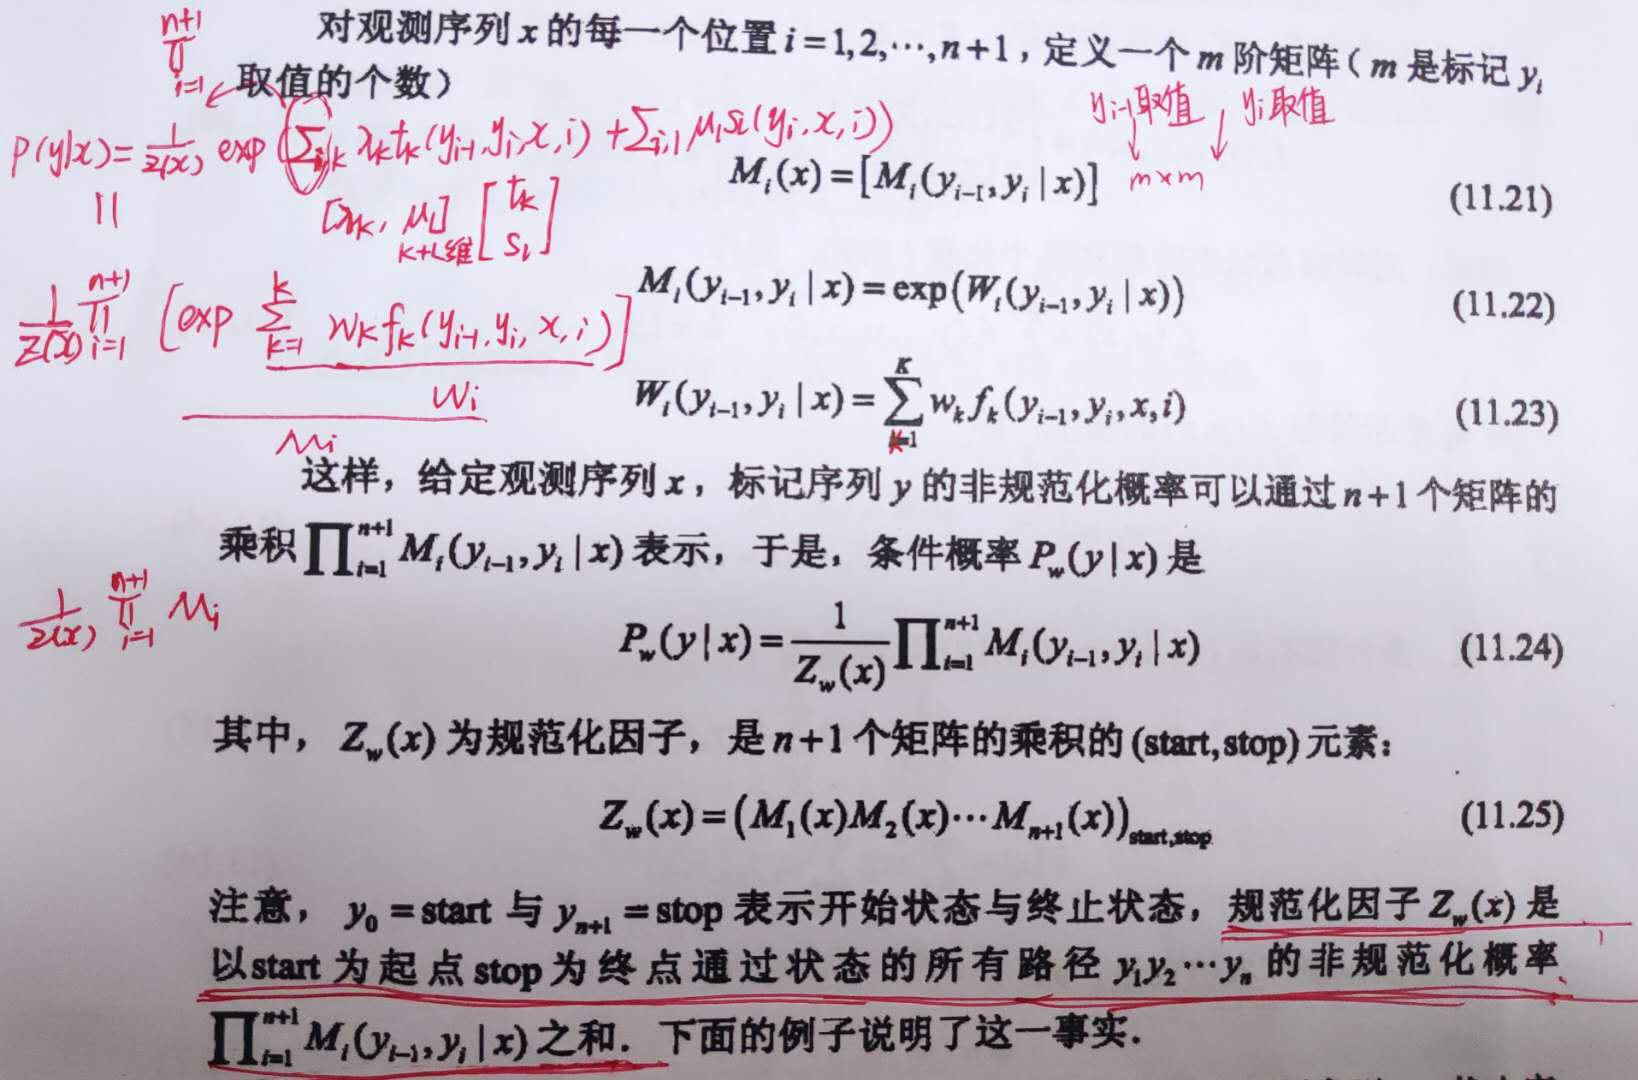 n+1
∏
i=1
对观测序列 x 的每一个位置 i = 1,2,⋯,n+1，定义一个 m 阶矩阵（m 是标记 y_i
取值的个数）
y_{i-1}取值 y_i取值
P(y|x) = 1/Z(x) exp(∑_{i,k} λ_k t_k(y_{i-1},y_i,x,i) + ∑_{i,l} μ_l s_l(y_i,x,i))
M_i(x) = [M_i(y_{i-1}, y_i | x)] m×m (11.21)
|| [λ_k, μ_l] [t_k s_l]
K+L维
M_i(y_{i-1}, y_i | x) = exp(W_i(y_{i-1}, y_i | x)) (11.22)
1/Z(x) ∏_{i=1}^{n+1} [exp ∑_{k=1}^{K} w_k f_k(y_{i-1},y_i,x,i)]
W_i
M_i
W_i(y_{i-1}, y_i | x) = ∑_{k=1}^{K} w_k f_k(y_{i-1}, y_i, x, i) (11.23)
这样，给定观测序列 x，标记序列 y 的非规范化概率可以通过 n+1 个矩阵的
乘积 ∏_{i=1}^{n+1} M_i(y_{i-1}, y_i | x) 表示，于是，条件概率 P_w(y | x) 是
1/Z(x) ∏_{i=1}^{n+1} M_i
P_w(y | x) = 1/Z_w(x) ∏_{i=1}^{n+1} M_i(y_{i-1}, y_i | x) (11.24)
其中，Z_w(x) 为规范化因子，是 n+1 个矩阵的乘积的 (start,stop) 元素：
Z_w(x) = (M_1(x)M_2(x)⋯M_{n+1}(x))_{start,stop} (11.25)
注意，y_0 = start 与 y_{n+1} = stop 表示开始状态与终止状态，规范化因子 Z_w(x) 是
以 start 为起点 stop 为终点通过状态的所有路径 y_1y_2⋯y_n 的非规范化概率
∏_{i=1}^{n+1} M_i(y_{i-1}, y_i | x) 之和．下面的例子说明了这一事实．